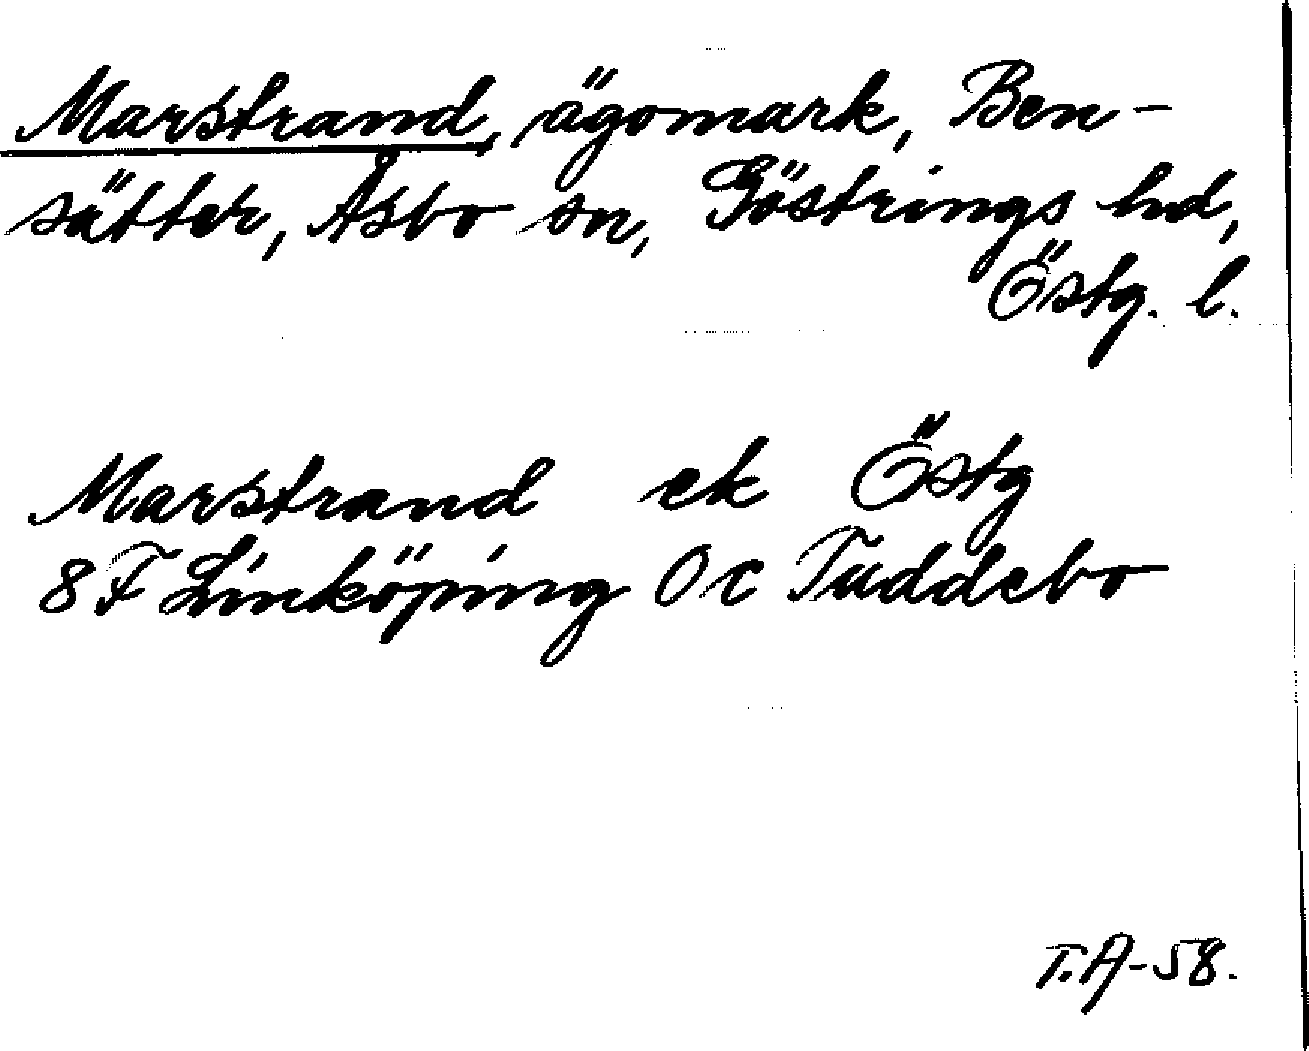 Marstrand, ägomark, Ben-
sätter, Åsbo sn, Göstrings hd,
Östg. l.
Marstrand ek Östg
8 F Linköping 0 c Tuddebo
T.A-58.